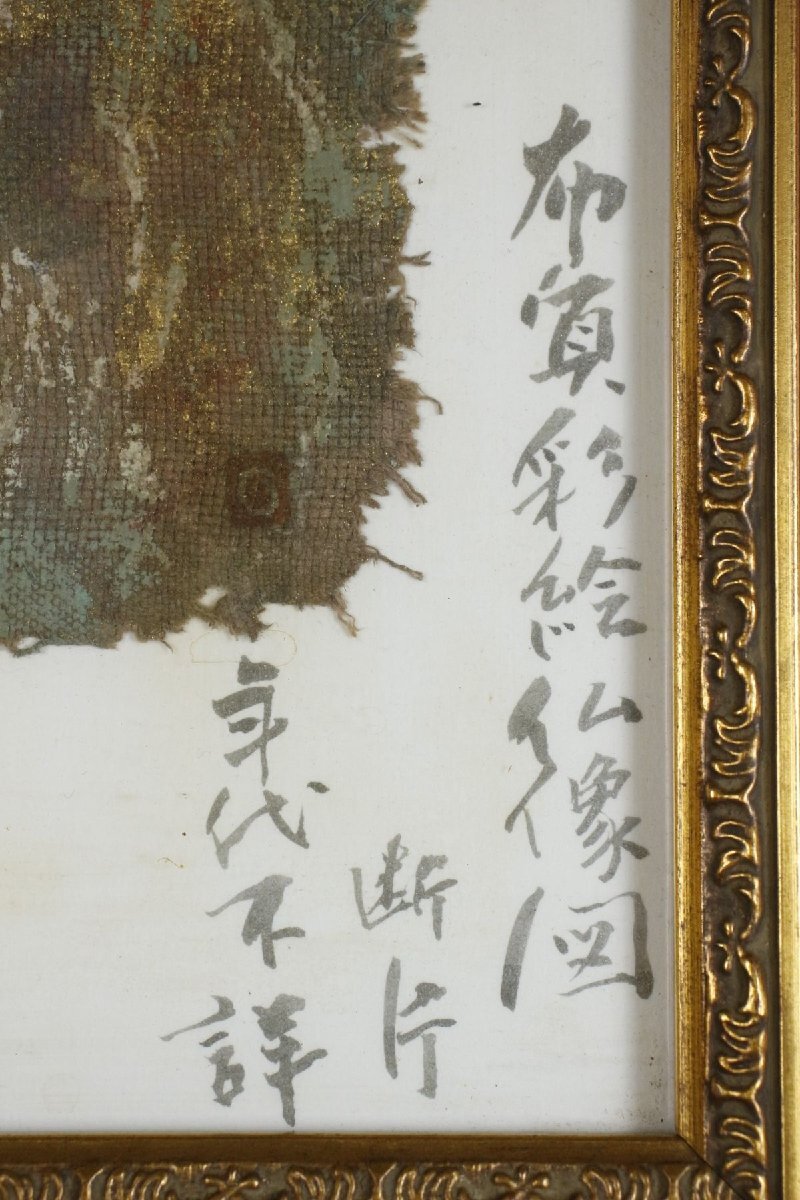 布質彩絵仏像図
断片
年代不詳